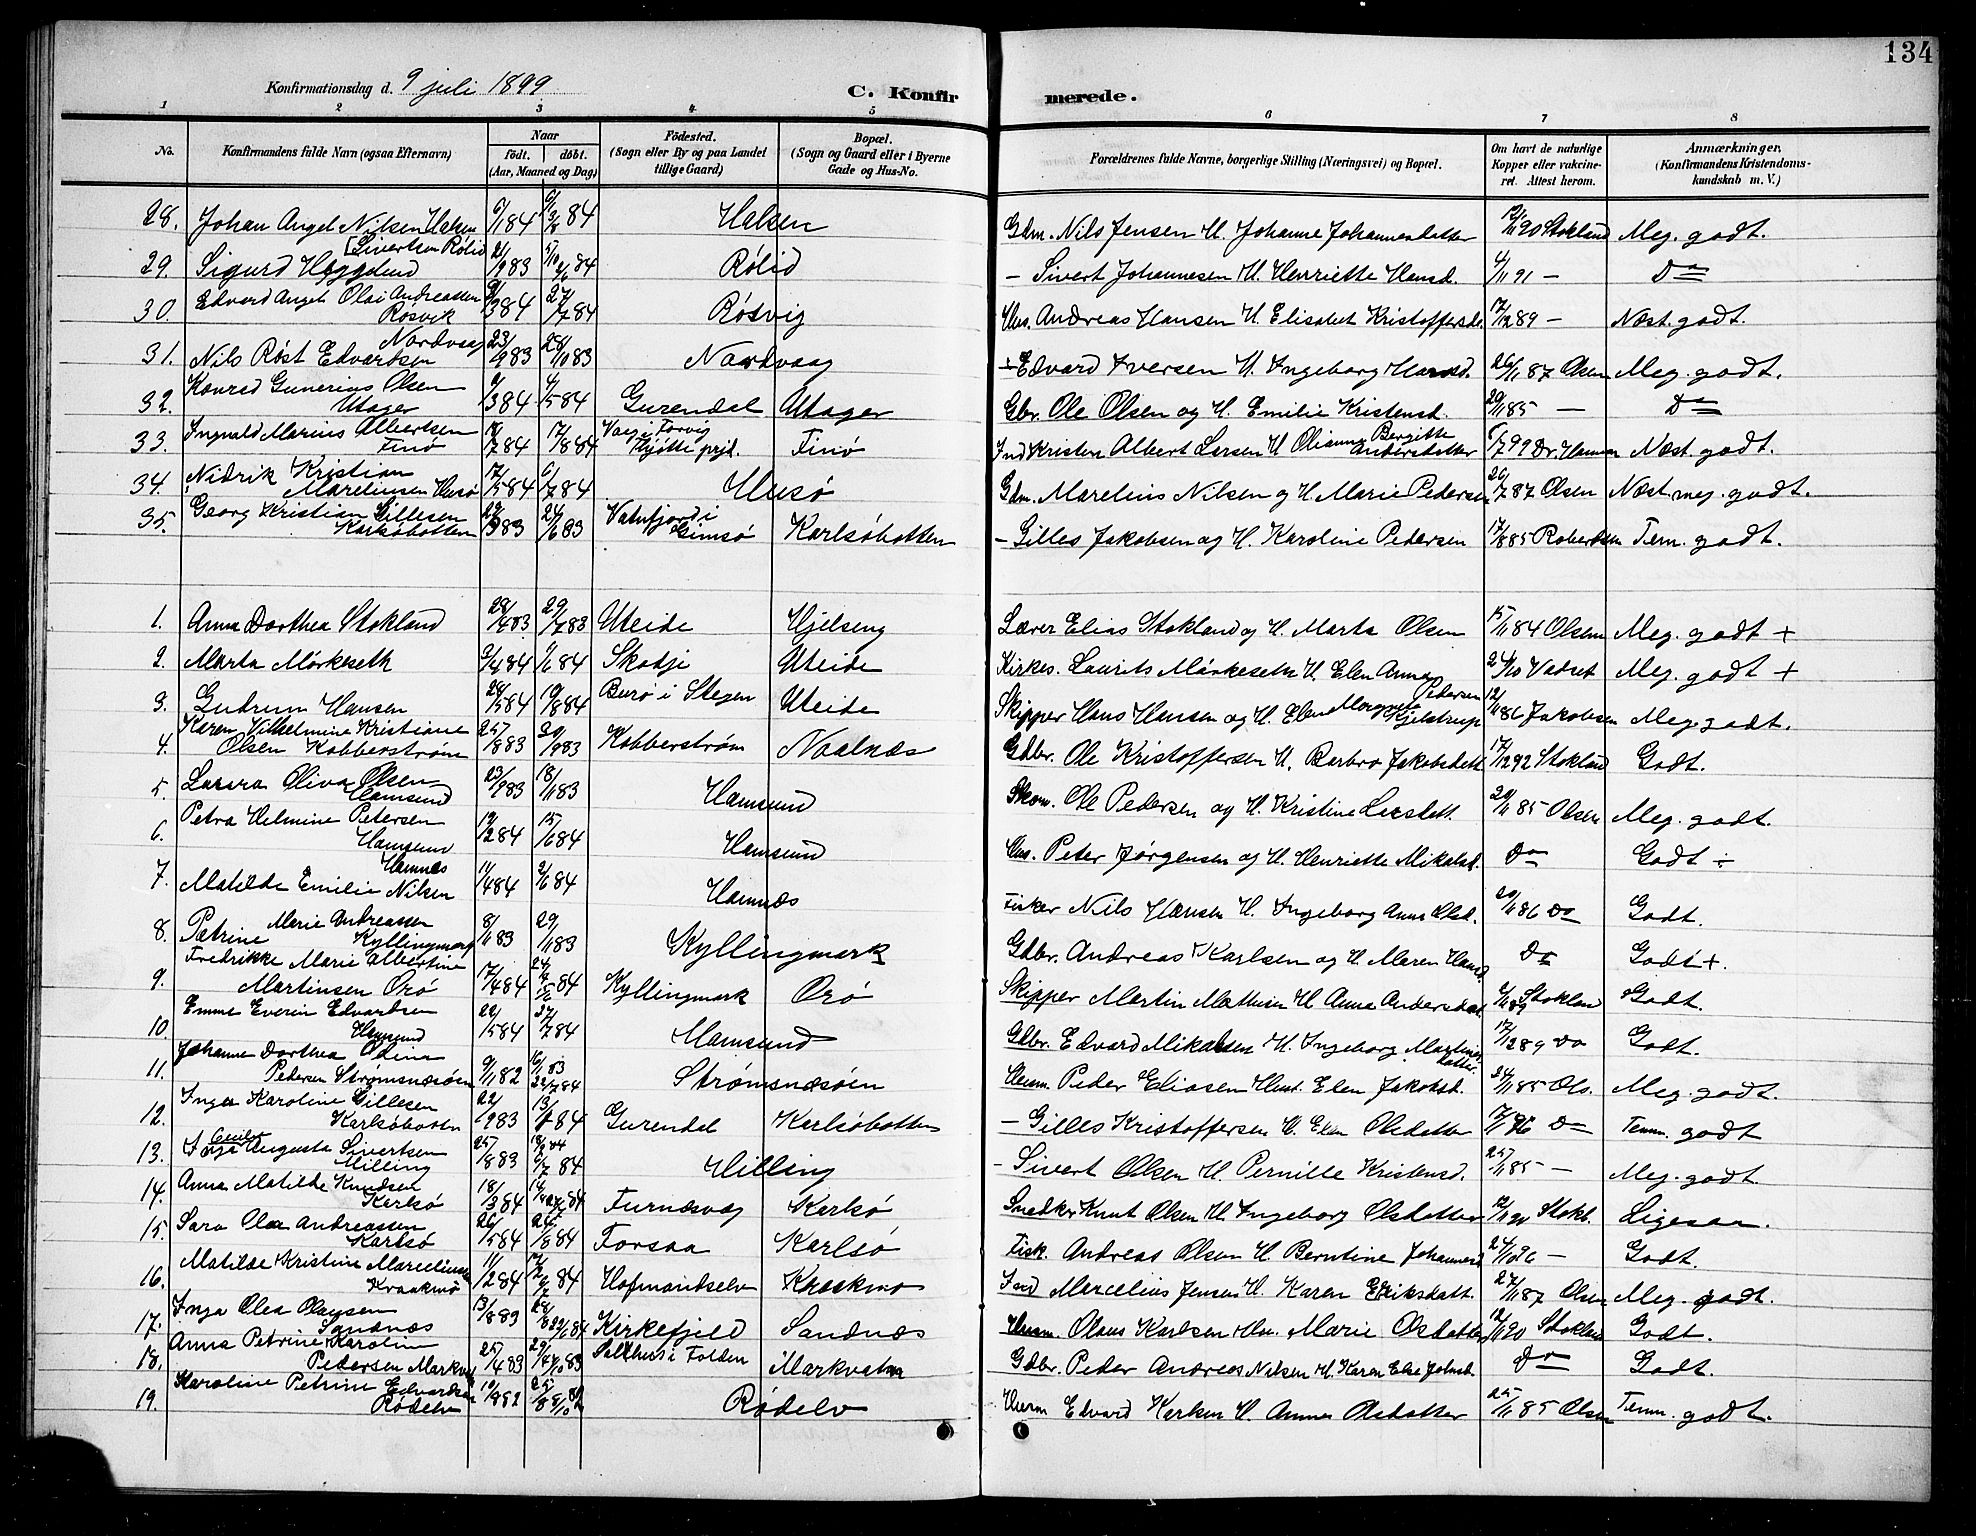 134
Konfirmationsdag d. 9 juli 1899
C. Konfirmerede.
1 2 3 4 5 6 7 8
No.
Konfirmandens fulde Navn (ogsaa Efternavn)
Naar
født. døbt.
(Aar, Maaned og Dag)
Fødested.
(Sogn eller By og paa Landet
tillige Gaard)
Bopæl.
(Sogn og Gaard eller i Byerne
Gade og Hus-No.
Forældrenes fulde Navne, borgerlige Stilling (Næringsvei) og Bopæl.
Om havt de naturlige
Kopper eller vakcine-
ret. Attest herom.
Anmærkninger.
(Konfirmandens Kristendoms-
kundskab m. V.)
28. Johan Angel Nilsen Halsen Halsen Gdm. Nils Jensen H. Johanne Johannesdatter Stokland Meg. godt.
29. Sigurd Heggelund Sivertsen Rølid Rølid - Sivert Johannesen H. Henriette Hansd. 4/11 91 - Do
30. Edvard Angel Olai Andreassen Røsvik Røsvig Hus. Andreas Hansen H. Elisabet Kristoffersd. 17/12 89 - Næst. godt.
31. Nils Røst Edvardsen Nordvaag 23/9 83 28/10 83 Nordvaag - Edvard Iversen H. Ingeborg Hansd. 26/11 87 Olsen Meg. godt.
32. Konrad Gunerius Olsen Utager 4/5 84 Gurendal Utager Gbr. Ole Olsen og H. Emilie Kristensd. 29/11 85 - Do
33. Ingvald Marius Albertsen Finø 17/8 84 Tjøtte prgd. Finø Ind Kristen Albert Larsen H. Olianna Bergitte Andersdatter Næst. godt.
34. Nidrik Kristian Marelinsen Husø 17/5 84 6/7 84 Husø Gdm. Marelius Nilsen og H. Marie Pedersen 26/7 87 Olsen Næst. meg. godt.
35. Georg Kristian Gillesen Karlsøbotten 24/6 83 Vatnfjord i Gimsø Karlsøbotten - Gilles Jakobsen og H. Karoline Pedersen 17/8 85 Robertsen Tem. godt.
1. Anna Dorthea Stokland 28/4 83 29/7 83 Uteide Hjelseng Lærer Elias Stokland og H. Marta Olsen 15/11 84 Olsen Meg. godt +
2. Marta Mørkeseth 2/4 84 Skodje Uteide Kirkes. Laurits Mørkeseth H. Elen Anna Vadset Meg. godt +
3. Gudrun Hansen 28/5 84 10/8 84 Burø i Stegen Uteide Skipper Hans Hansen og H. Elen Margrete Pedersen Kjelstrup 12/11 86 Jakobsen Meg. godt.
4. Karen Vilhelmine Kristiane Olsen Kobberstrøm 25/8 83 20/9 83 Kobberstrøm Naalnæs Gdbr. Ole Kristoffersen H. Barbro Jakobsdatt 17/12 92 Stokland Godt.
5. Laura Oliva Olsen Hamsund 23/9 83 18/11 83 Hamsund Skom. Ole Pedersen og H. Kristine Larsdatt. 20/11 85 Olsen Meg. godt.
6. Petra Helmine Petersen Hamsund 19/2 84 15/6 84 Hamsund Hus. Peter Jørgensen og H. Henriette Mikalsd. Do Godt ÷
7. Matilde Emilie Nilsen Hamnes 11/4 84 2/6 84 Hamnæs Fisker Nils Hansen H. Ingeborg Anna Olsd. 20/11 86 Do Godt.
8. Petrine Marie Andreassen Kyllingmark 8/11 83 29/11 83 Kyllingmark Gdbr. Andreas Karlsen og H. Maren Hansd. Do Godt +.
9. Fredrikke Marie Albertine Martinsen Orø 17/4 84 Kyllingmark Orø Skipper Martin Mathisen H. Anna Andersdatt Stokland Godt.
10. Emma Everin Edvardsen Hamsund 22/5 84 27/7 84 Hamsund Gdbr. Edvard Mikalsen H. Ingeborg Martinsdatter 17/12 89 Do Godt.
11. Johanna Dorthea Odine Pedersen Strømsnæsøen 9/11 82 16/1 83 22/7 84 Strømsnæsøen Husm. Peder Eliasen Hust. Elen Jakobsd. 24/11 85 Ols. Meg. godt.
12. Inga Karoline Gillesen Karlsøbotten 22/9 83 Gurendal Karlsøbotten - Gilles Kristoffersen H. Elen Olsdatter Do Temm. godt
13. Inga Cecilie Augusta Sivertsen Hilling 25/8 83 Hilling - Sivert Olsen H. Pernille Kristensd. 25/11 85 - Meg. godt
14. Anna Matilde Knudsen Karlsø 18/3 84 Furnæsvag Karlsø Snedker Knut Olsen H. Ingeborg Olsdatter Stokl. Ligesaa.
15. Sara Olea Andreassen Karlsø 26/5 84 24/8 84 Forsaa Karlsø Fisk. Andreas Olsen H. Berntine Johannesd. Godt.
16. Matilde Kristine Marcelinsen Kraakmo 11/2 84 Hofmandselv Kraakmo Ind Marcelius Jensen H. Karen Eriksdatt. 27/11 87 Olsen Meg. godt.
17. Inga Olea Olausen Sandnæs 13/8 83 Kirkefjeld Sandnæs Husm. Olaus Karlsen Hu. Marie Olsdatter 12/11 90 Stokland Godt.
18. Anna Petrine Karolin Pedersen Markvatn 25/4 83 Salthus i Folden Markvatn Gdbr. Peder Andreas Nilsen H. Karen Else Johnsd. Do Godt.
19. Karoline Petrine Edvardsen Rødelv 10/8 82 Rødelv Husm Edvard Karlsen H. Anne Olsdatter 25/11 85 Olsen Temm. godt.